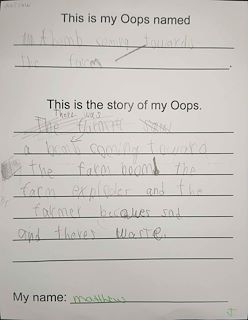 This is my Oops named
towards
the farm
This is the story of my Oops.
There was
The farmer
a brain coming toward
the farm boom the
farm exploder and the
farmer becomes sad
and theres warre.
My name: matthew